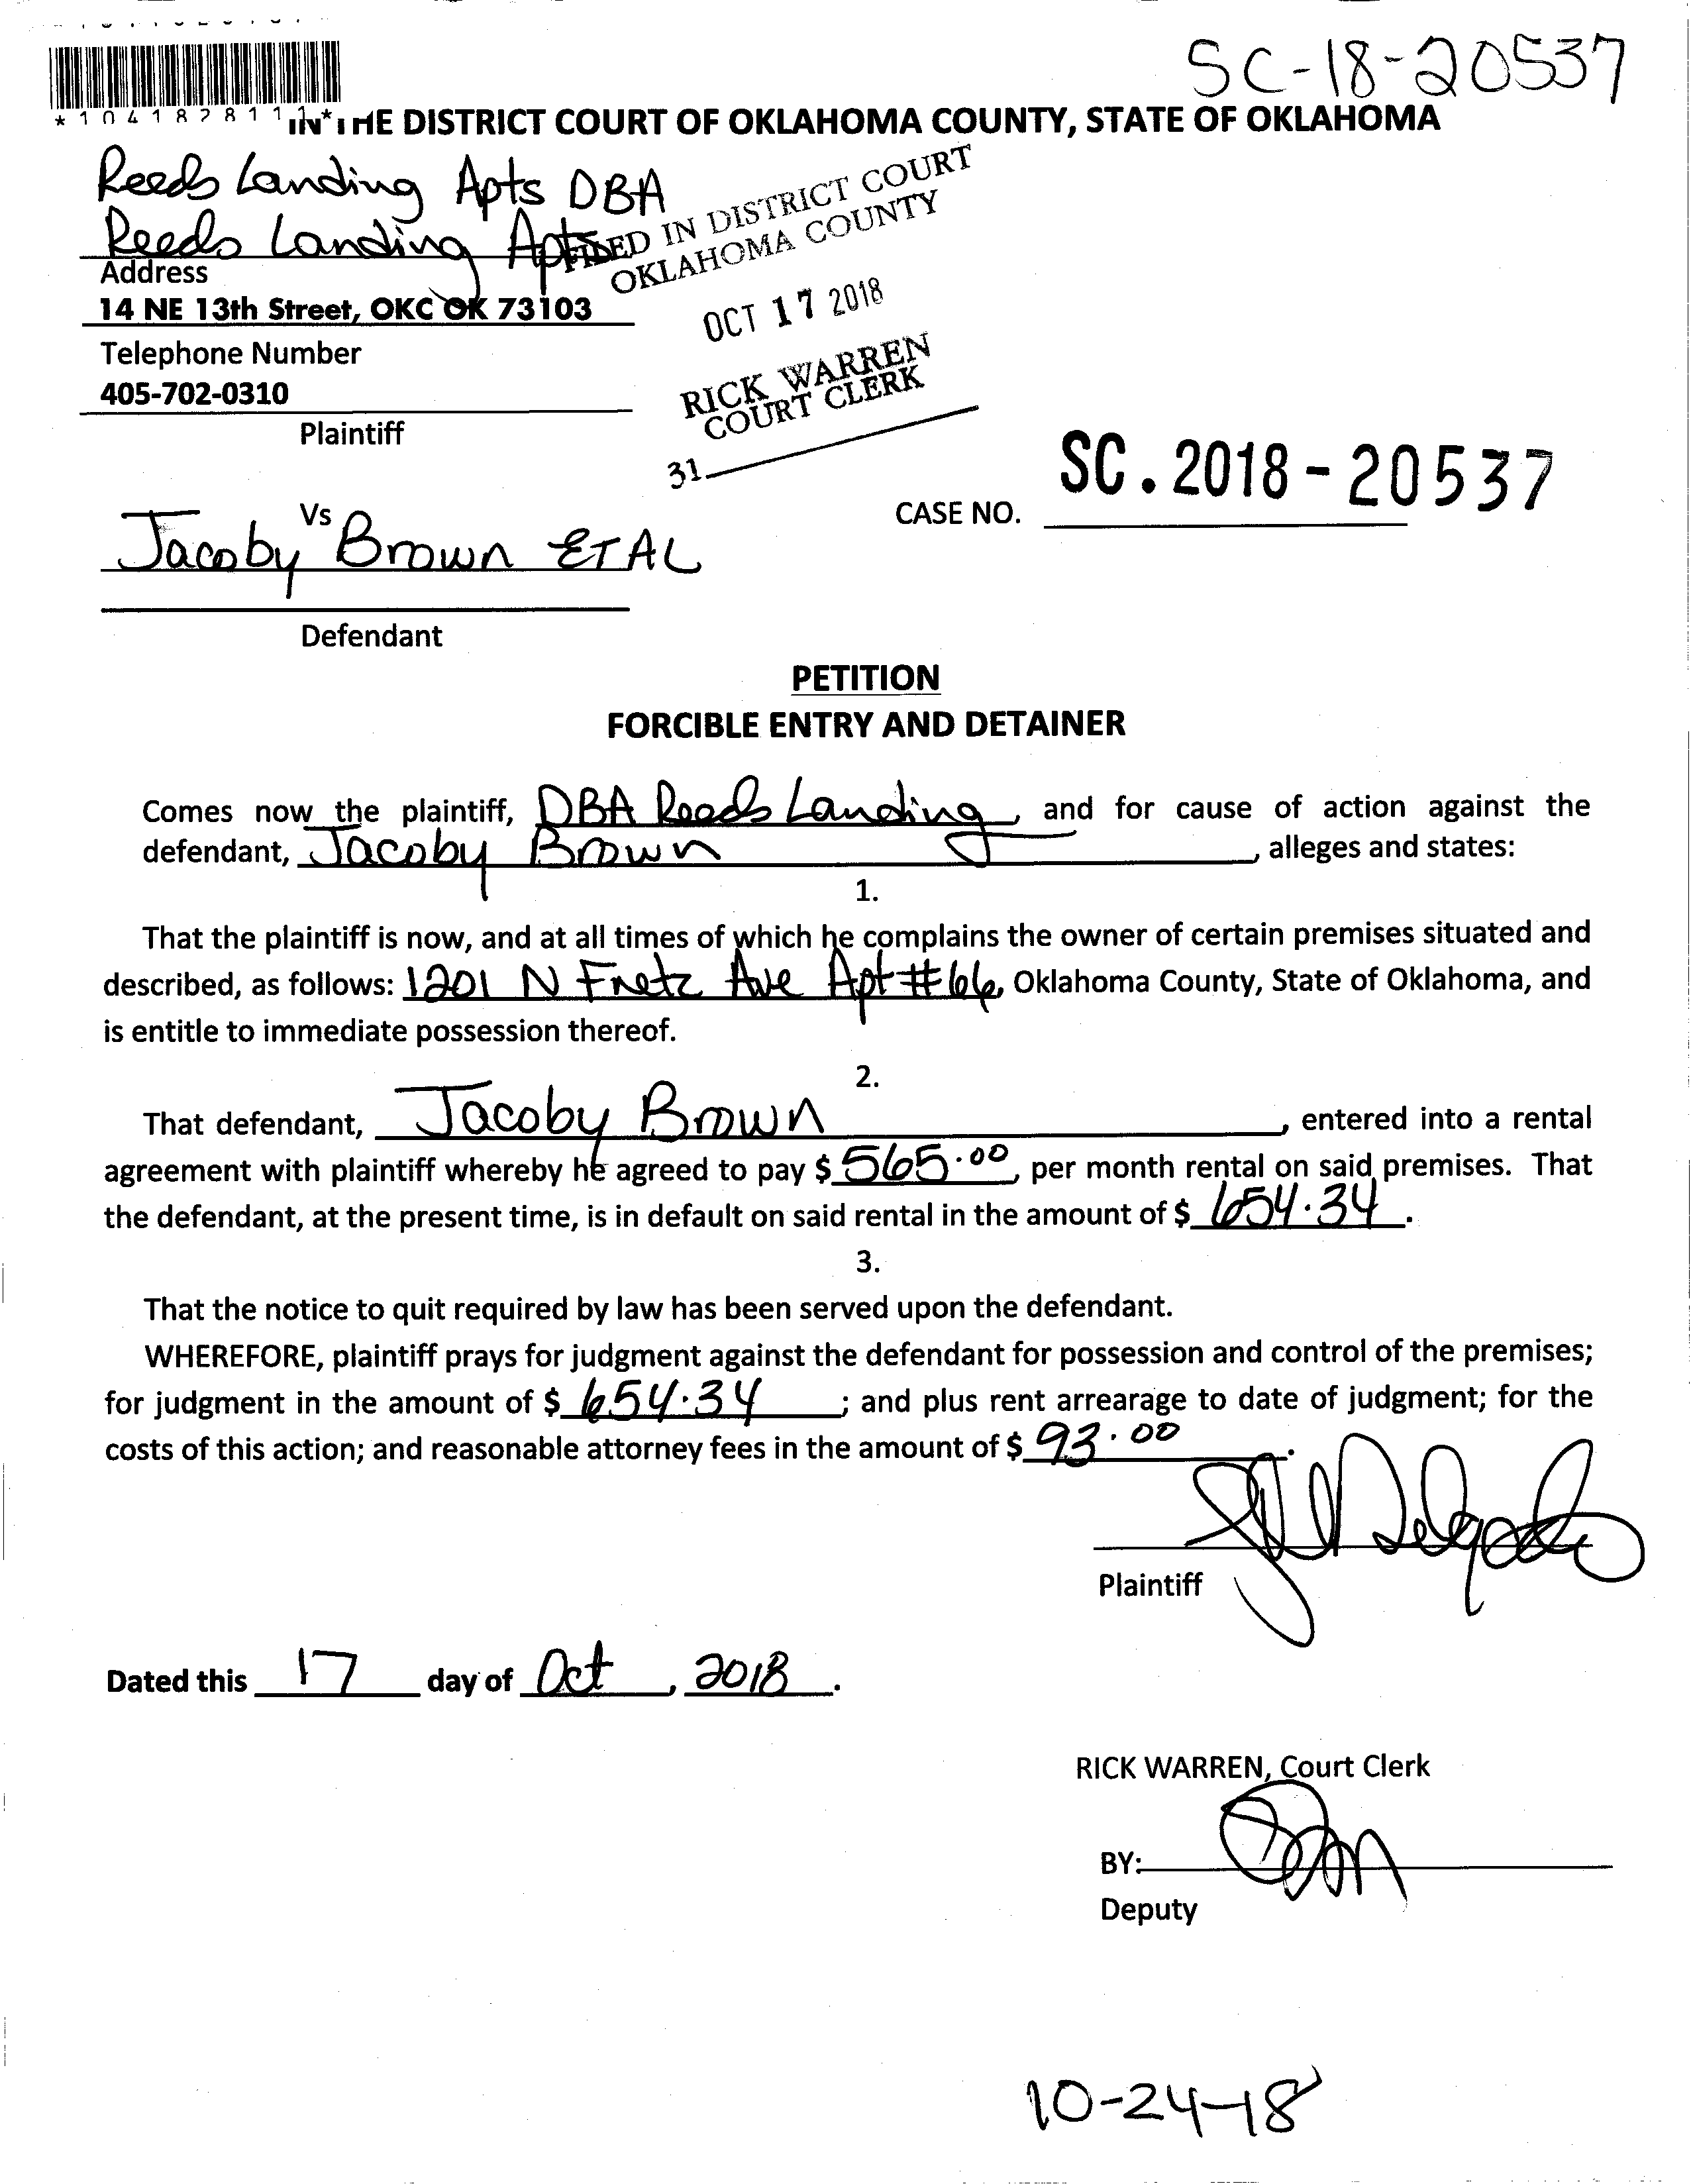 SC-18-20537
*1041828111*
IN THE DISTRICT COURT OF OKLAHOMA COUNTY, STATE OF OKLAHOMA
Reeds Landing Apts DBA
Reeds Landing Apts
Address
14 NE 13th Street, OKC OK 73103
Telephone Number
405-702-0310
Plaintiff
FILED IN DISTRICT COURT
OKLAHOMA COUNTY
OCT 17 2018
RICK WARREN
COURT CLERK
31
Vs
Jacoby Brown ET AL
Defendant
CASE NO. SC.2018-20537
PETITION
FORCIBLE ENTRY AND DETAINER
Comes now the plaintiff, DBA Reeds Landing, and for cause of action against the
defendant, Jacoby Brown, alleges and states:
1.
That the plaintiff is now, and at all times of which he complains the owner of certain premises situated and
described, as follows: 1201 N Fretz Ave Apt #66, Oklahoma County, State of Oklahoma, and
is entitle to immediate possession thereof.
2.
That defendant, Jacoby Brown, entered into a rental
agreement with plaintiff whereby he agreed to pay $ 565.00, per month rental on said premises. That
the defendant, at the present time, is in default on said rental in the amount of $ 654.34.
3.
That the notice to quit required by law has been served upon the defendant.
WHEREFORE, plaintiff prays for judgment against the defendant for possession and control of the premises;
for judgment in the amount of $ 654.34; and plus rent arrearage to date of judgment; for the
costs of this action; and reasonable attorney fees in the amount of $ 93.00.
Delgado
Plaintiff
Dated this 17 day of Oct, 2018.
RICK WARREN, Court Clerk
BY:
Deputy
10-24-18